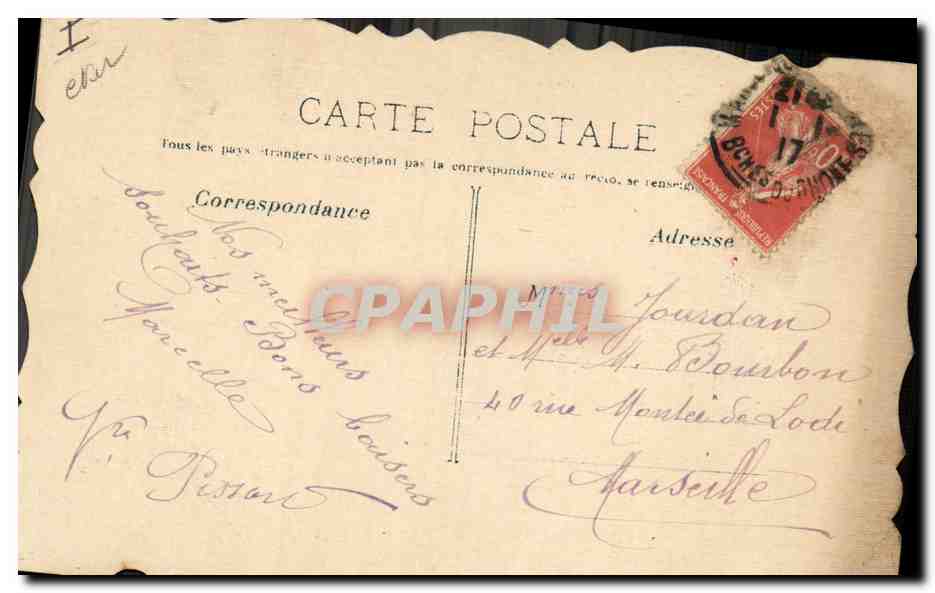 I
CARTE POSTALE
Tous les pays étrangers n'acceptant pas la correspondance au recto, se renseig
Correspondance
Adresse
Nos meilleurs
souhaits. Bons baisers
Marcelle
Vve Pisson
Mmes Jourdan
et Melle M. Bourbon
40 rue Montée de Lodi
Marseille
21
1 - 1
17
BCHES DU RHONE
POSTES
10
REPUBLIQUE FRANCAISE
CPAPHIL